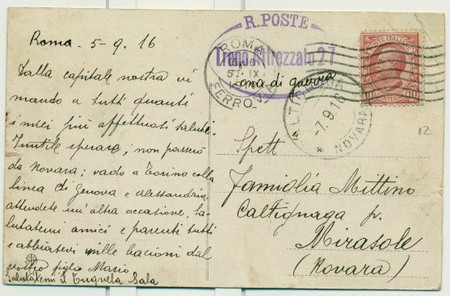 Roma 5-9.16
Dalla capitale nostra vi
mando a tutti quanti
i miei più affettuosi saluti
Inutile sperare, non passerò
da Novara; vado a Torino colla
linea di Genova e Alessandria,
attendete un'altra occasione, sa-
lutatemi amici e parenti tutti
e abbiatevi mille bacioni dal
vostro figlio Mario
Salutatemi
Sala
R. POSTE
Treno Attrezzato 27
zona di guerra
ROMA
FERROVIA
CALTIGNAGA
-7.9.16
NOVARA
10
12
Spett
Famiglia Mittino
Caltignaga p.
Mirasole
(Novara)